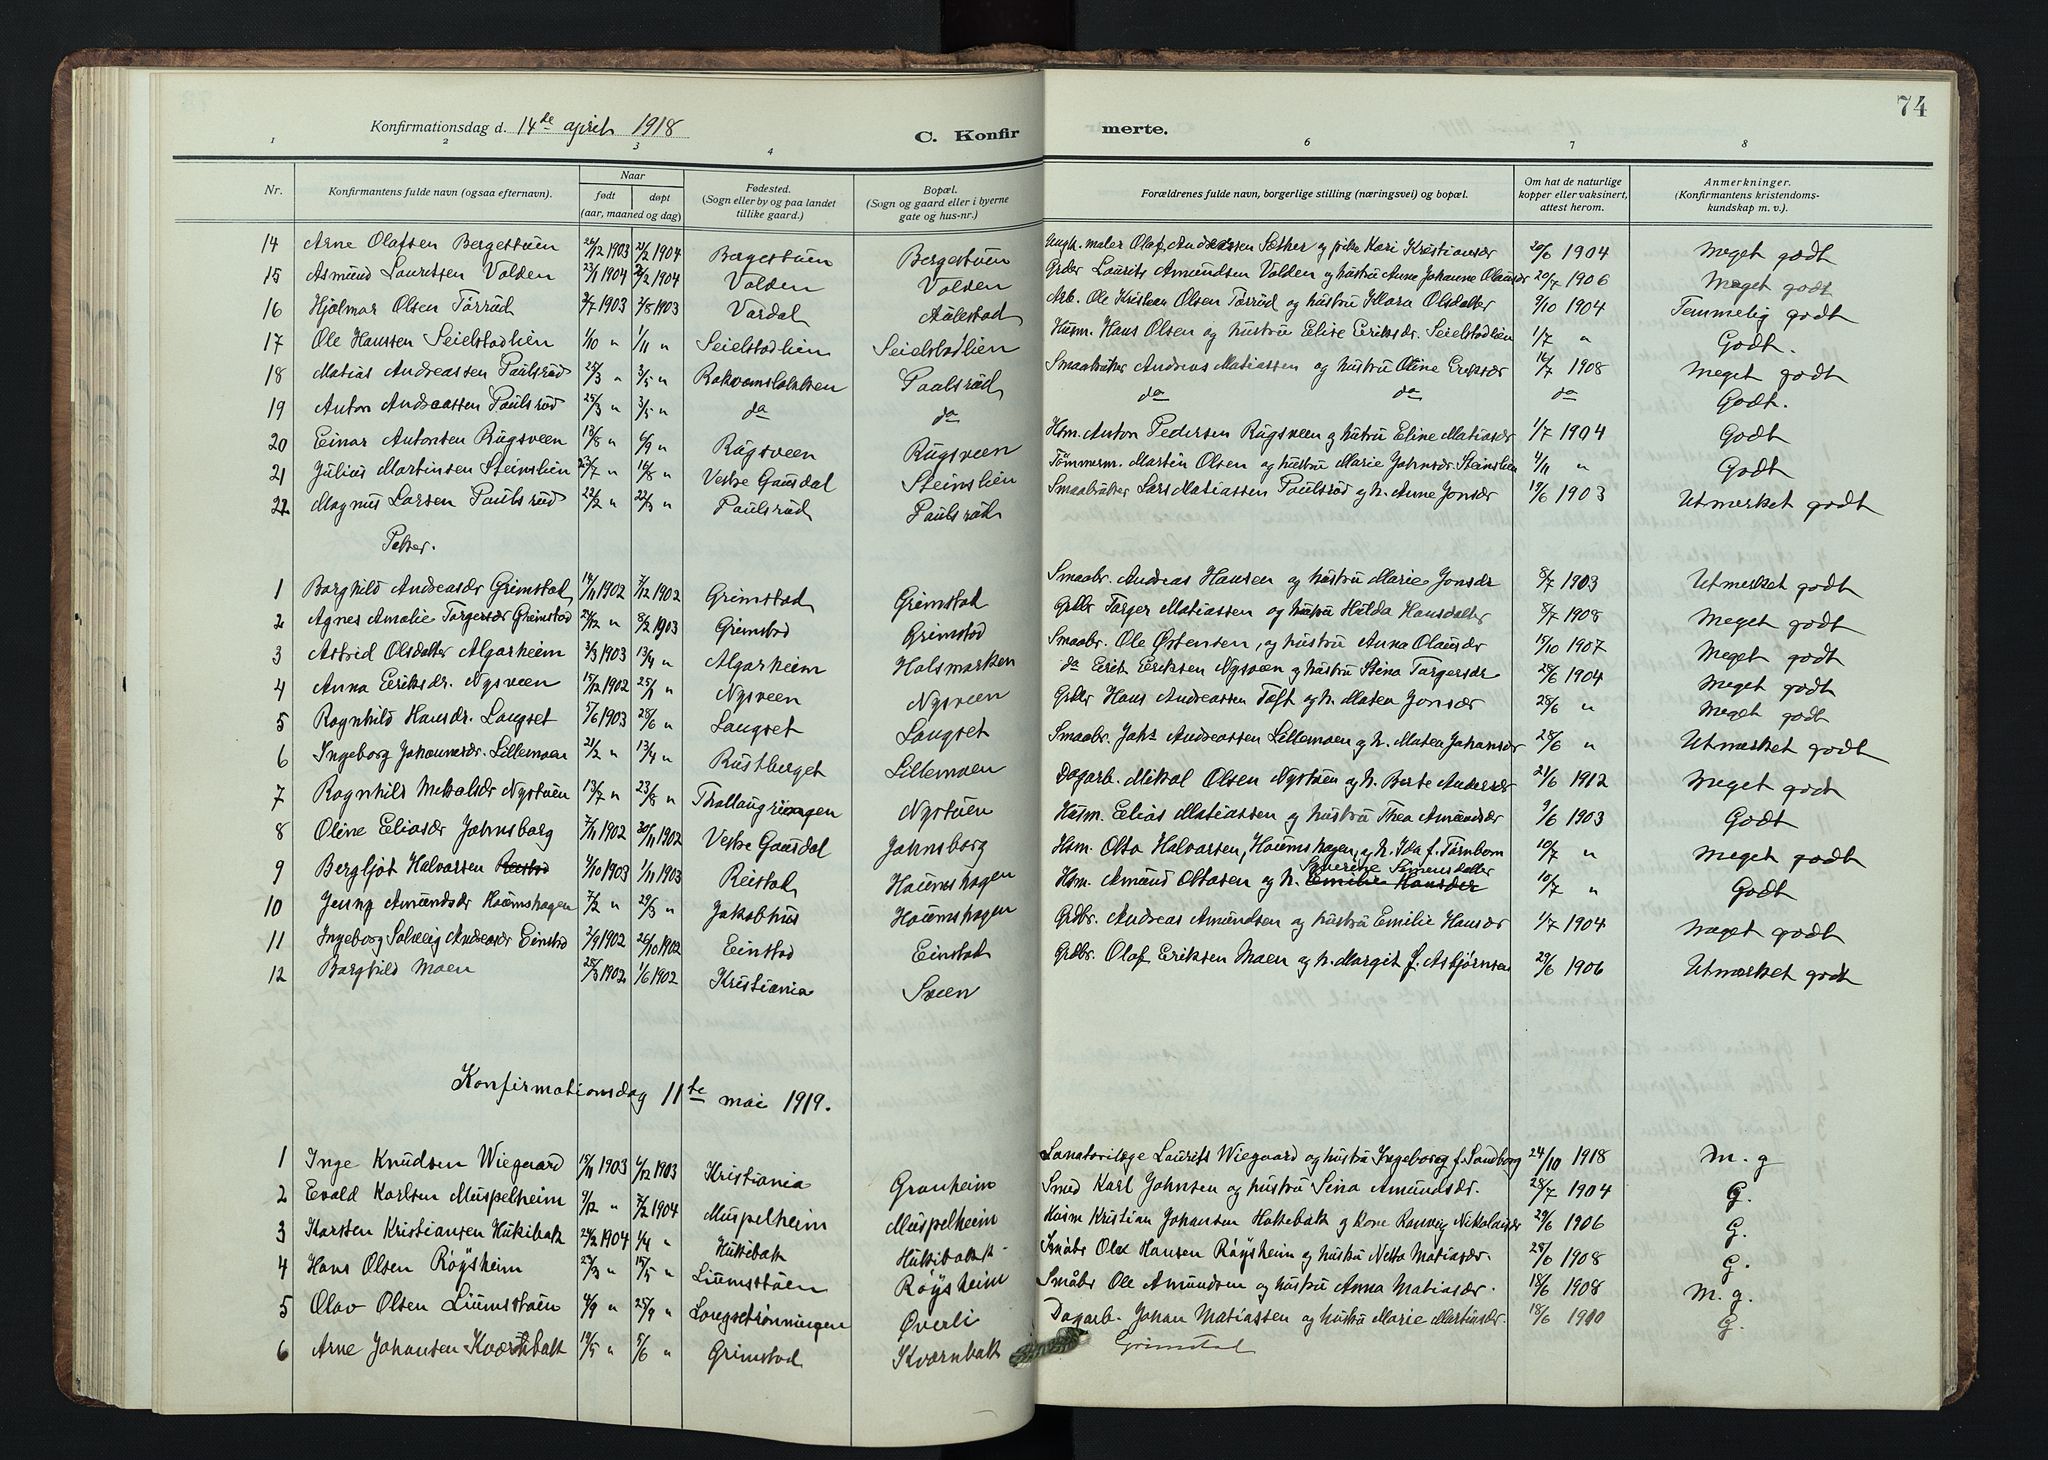 74
Konfirmationsdag d. 14de april 1918
C. Konfirmerte.
1 2 3 4 6 7 8
Nr. Konfirmantens fulde navn (ogsaa efternavn). Naar født døpt (aar, maaned og dag) Fødested. (Sogn eller by og paa landet tillike gaard.) Bopæl. (Sogn og gaard eller i byerne gate og hus-nr.) Forældrenes fulde navn, borgerlige stilling (næringsvei) og bopæl. Om hat de naturlige kopper eller vaksinert, attest herom. Anmerkninger. (Konfirmantens kristendomskundskap m. v.)
14 Arne Olafsen Bergestuen 26/12 1903 21/2 1904 Bergestuen Bergestuen Ungk. maler Olaf Andersen Sæther og pike Kari Kristiansdr 20/6 1904 Meget godt
15 Asmund Lauritsen Volden 23/1 1904 2/2 1904 Volden Volden Grder Laurits Amundsen Volden og hustru Anne Johanne Olausdr 20/7 1906 Meget godt
16 Hjalmar Olsen Tørrud 3/7 1903 2/8 1903 Vardal Aulestad Arb. Ole Kristian Olsen Tørrud og hustru Klara Olsdatter 9/10 1904 Temmelig godt
17 Ole Hansen Seielstadlien 1/10 " 1/11 " Seielstadlien Seielstadlien Husm. Hans Olsen og hustru Elise Eriksdr. Seielstadlien 1/7 " Godt.
18 Matias Andreassen Paulsrud 25/3 " 3/5 " Paalsrud Smaabruker Andreas Matiassen og hustru Oline Eriksdr 16/7 1908 Meget godt
19 Anton Andreassen Paulsrud 25/3 " 3/5 " do do do do do Godt.
20 Einar Antonsen Rugsveen 13/8 " 6/9 " Rugsveen Rugsveen Hsm. Anton Pedersen Rugsveen og hustru Eline Matiasdr 1/7 1904 Godt
21 Julius Martinsen Steinslien 23/7 " 16/8 " Vestre Gausdal Steinslien Tømmerm. Martin Olsen og hustru Marie Johnsdr. Steinslien 4/11 " Godt
22 Magnus Larsen Paulsrud 22/2 " 22/3 " Paulsrud Paulsrud Smaabruker Lars Matiassen Paulsrud og h. Anne Jonsdr 19/6 1903 Utmerket godt
Piker.
1 Borghild Andreasdr Grimstad 14/11 1902 7/12 1902 Grimstad Grimstad Smaabr. Andreas Hansen og hustru Marie Jonsdr 8/7 1903 Utmerket godt
2 Agnes Amalie Torgersdr Grimstad 24/12 " 8/2 1903 Grimstad Grimstad Grdbr Torger Matiassen og hustru Hulda Hansdatter 8/7 1908 Meget godt
3 Astrid Olsdatter Algarheim 3/3 1903 13/4 " Algarheim Halsmarken Smaabr. Ole Østensen, og hustru Anna Olausdr 15/10 1907 Meget godt
4 Anna Eriksdr. Nysveen 15/12 1902 25/1 " Nysveen Nysveen do Erik Eriksen Nysveen og hustru Stina Torgersdr 28/6 1904 Meget godt
5 Ragnhild Hansdr. Langset 5/6 1903 28/6 " Langset Langset Grdbr Hans Andreassen Toft og h. Maten Jonsdr 28/6 " Meget godt
6 Ingeborg Johannesdr. Lillemoen 21/2 " 13/4 " Rustberget Lillemoen Smaabr. Johs Andreassen Lillemoen og h. Matea Johansdr 28/6 " Utmerket godt
7 Ragnhild Mikalsdr Nystuen 13/7 " 23/8 " Nystuen Dagarb. Mikal Olsen Nystuen og h. Berte Andersdr 21/6 1912 Meget godt
8 Oline Eliasdr Johnsborg 7/11 1902 30/11 1902 Vestre Gausdal Johnsborg Husm. Elias Matiassen og hustru Thea Amundsdr 9/6 1903 Godt
9 Bergljot Halvorsen Reistad 7/10 1903 1/11 1903 Reistad Houmshagen Hsm. Otto Halvorsen, Houmshagen, og h. Ida f. Tørnbom 10/7 " Meget godt
10 Jenny Amundsdr Houmshagen 7/2 " 29/3 " Jakobhus Houmshagen Hsm. Amund Ottosen og h. Severine Simensdatter Emilie Hansdr 10/7 " Godt
11 Ingeborg Solveig Andreasdr Einstad 2/9 1902 26/10 1902 Einstad Einstad Grdbr. Andreas Amundsen og hustru Emilie Hansdr 1/7 1904 Meget godt
12 Borghild Moen 25/3 1902 1/6 1902 Kristiania Sveen Grdbr. Olaf Eriksen Moen og h. Margit f. Asbjørnsen 29/6 1906 Utmerket godt
Konfirmationsdag 11te mai 1919.
1 Inge Knudsen Wiegaard 15/11 1903 6/12 1903 Kristiania Granheim Sanatorilæge Laurits Wiegaard og hustru Ingeborg f. Sandborg 24/10 1918 M. g
2 Evald Karlsen Muspelheim 9/12 " 7/2 1904 Muspelheim Muspelheim Smed Karl Johnsen og hustru Sina Amundsdr. 28/7 1904 G.
3 Karsten Kristiansen Hukibak 24/2 1904 4/4 " Hukibak Hukibakk Husm Kristian Johansen Hokkebak og kone Ranveig Nikolaisdr 29/6 1906 G.
4 Hans Olsen Røysheim 27/3 " 15/5 " Liumstuen Røysheim Småbr Ole Hansen Røysheim og hustru Netta Matiasdr. 28/6 1908 G.
5 Olav Olsen Liumstuen 4/9 " 25/9 " Langsetrønningen Øverli Småbr Ole Amundsen og hustru Anna Matiasdr. 18/6 1908 M. g.
6 Arne Johansen Kværnbak 19/5 " 5/6 " Grimstad Kværnbak Dagarb. Johan Matiassen og hustru Marie Martinsdr 18/6 1910 G.
Grimstad